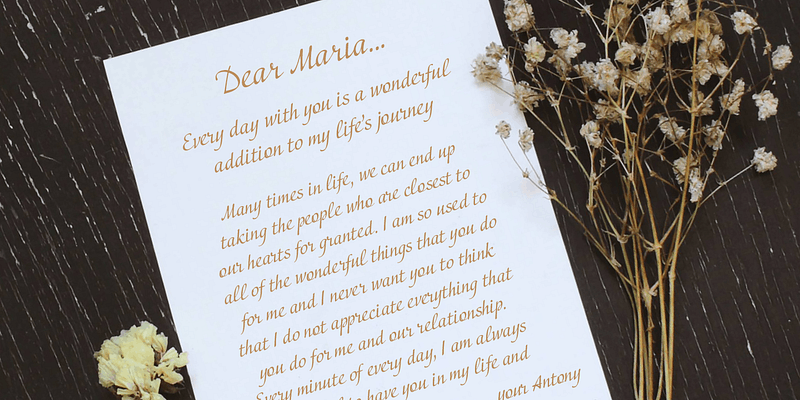 Dear Maria...
Every day with you is a wonderful
addition to my life's journey
Many times in life, we can end up
taking the people who are closest to
our hearts for granted. I am so used to
all of the wonderful things that you do
for me and I never want you to think
that I do not appreciate everything that
you do for me and our relationship.
Every minute of every day, I am always
to have you in my life and
your Antony